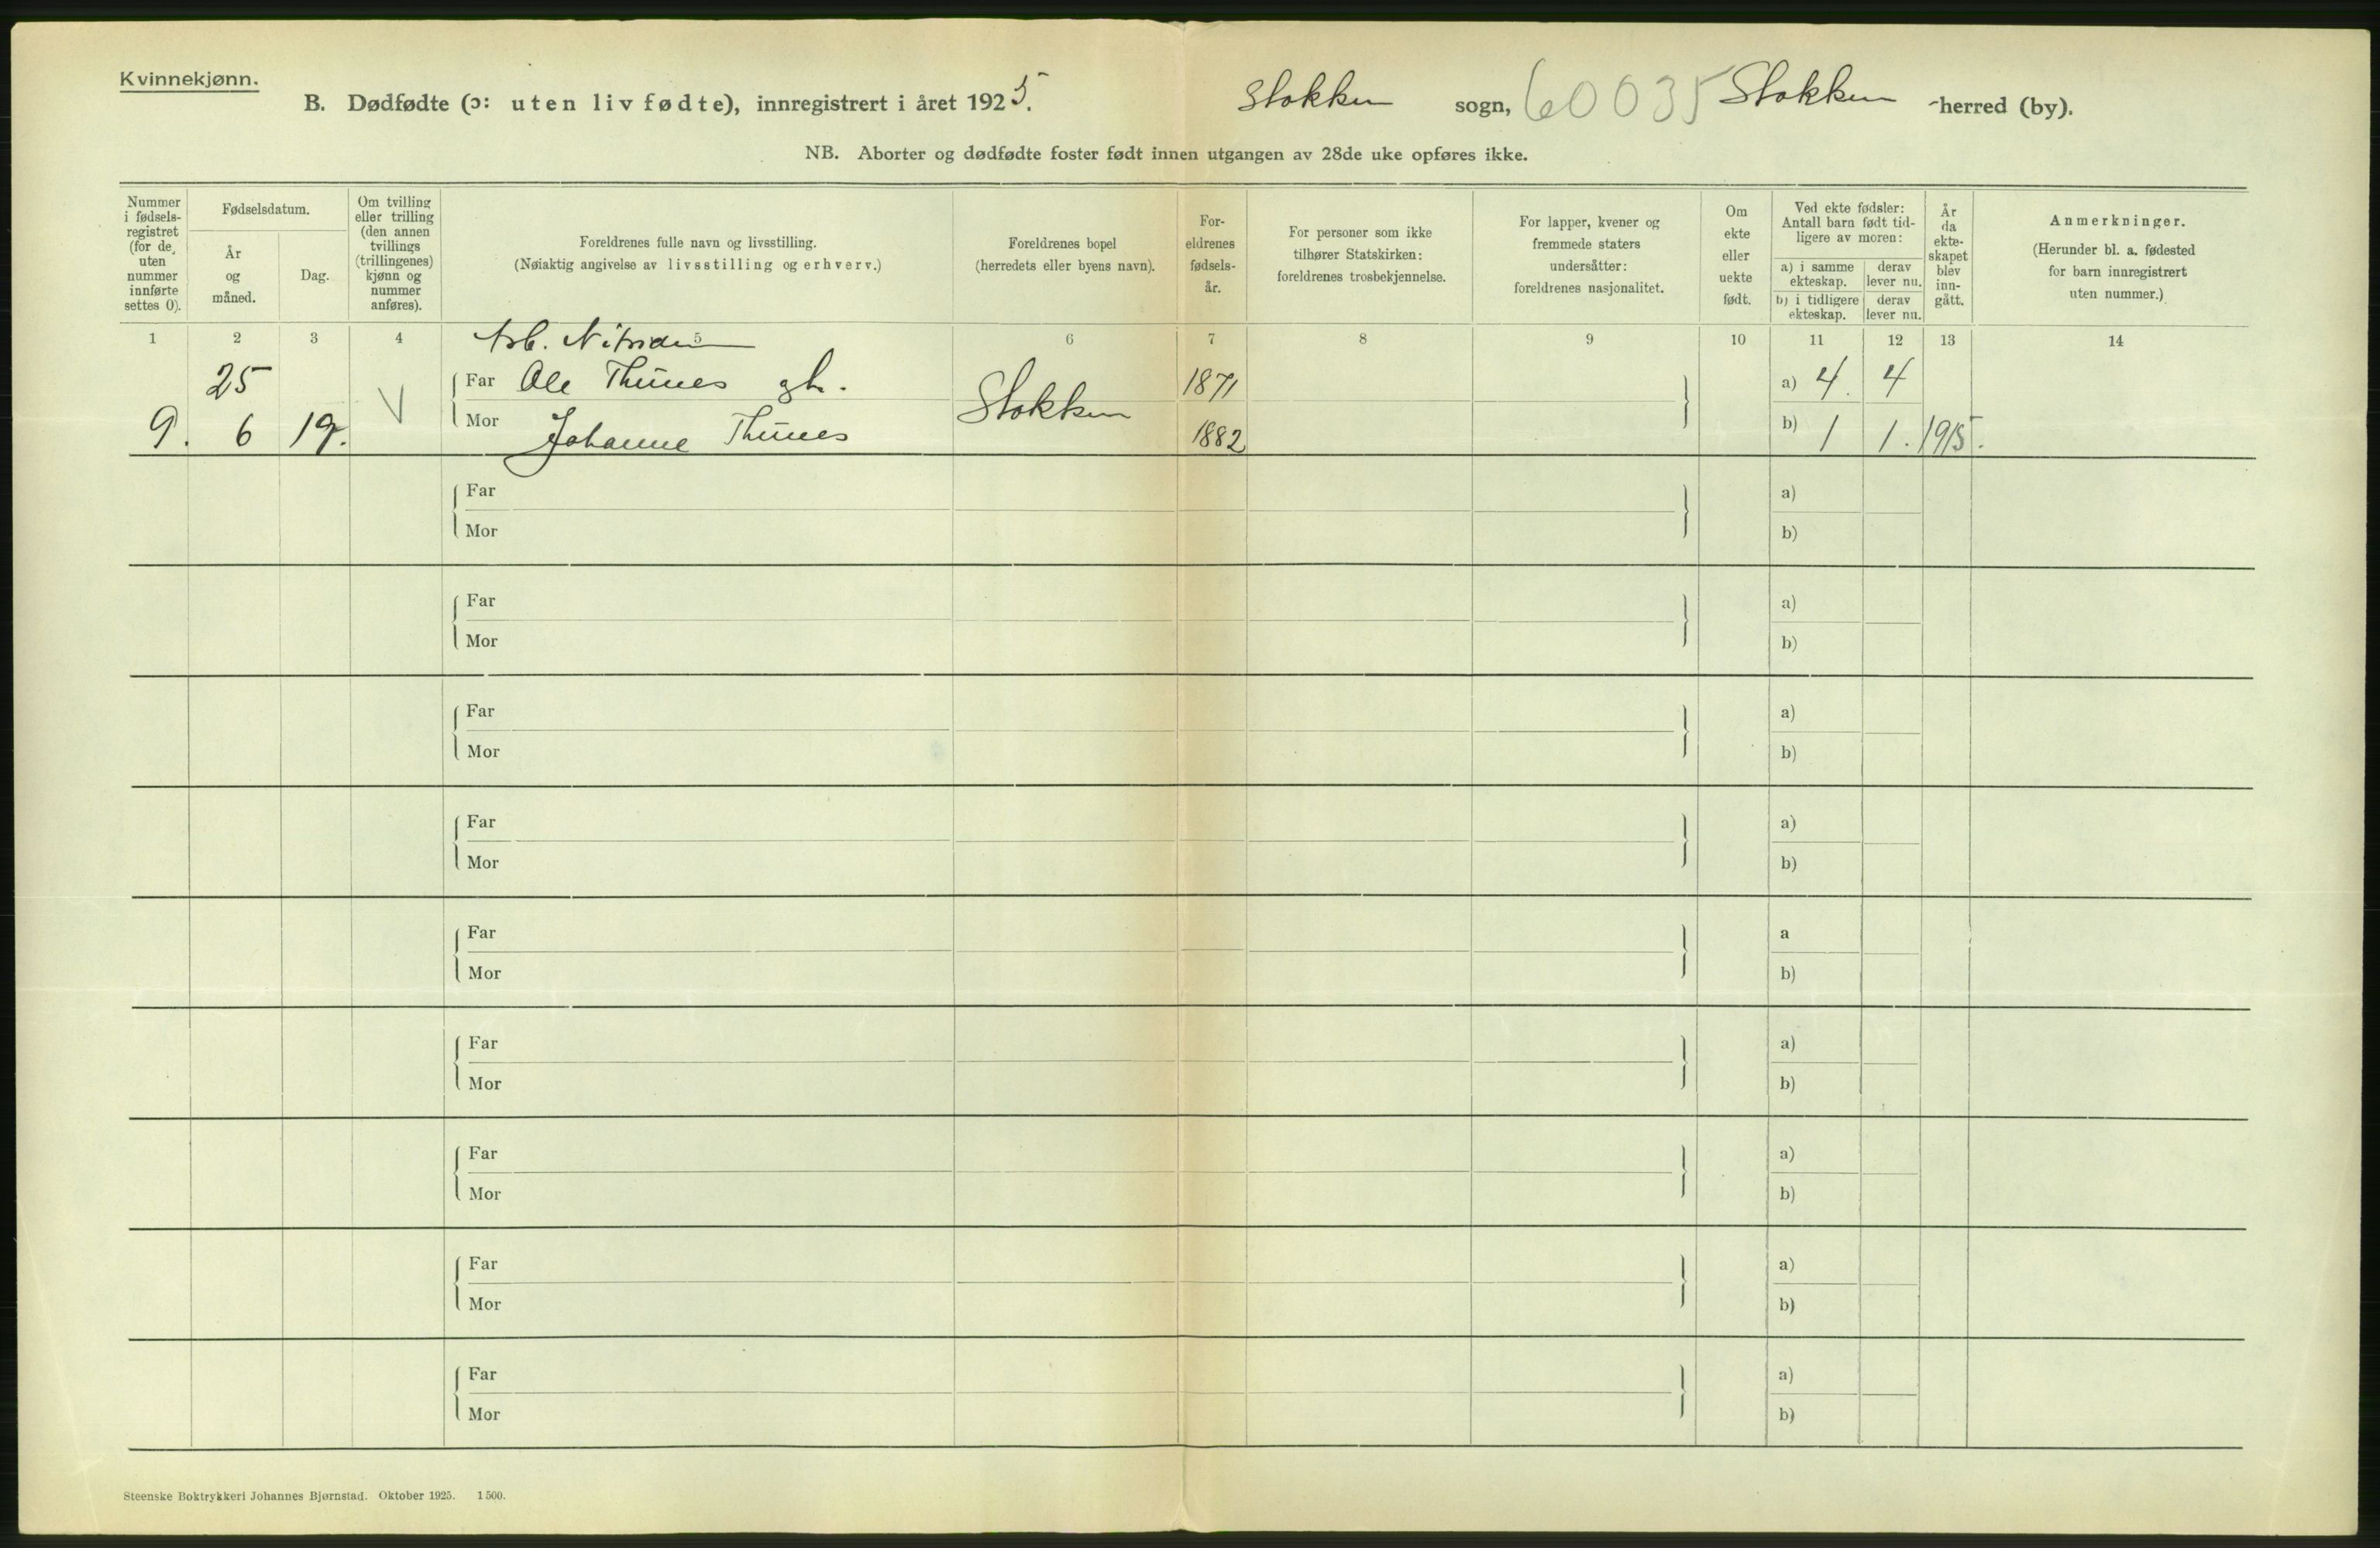 Kvinnekjønn.
B. Dødfødte (ɔ: uten liv fødte), innregistrert i året 1925. Stokken sogn, 60035 Stokken -herred (by).
NB. Aborter og dødfødte foster født innen utgangen av 28de uke opføres ikke.
Nummer i fødsels-registret (for de uten nummer innførte settes 0).
Fødselsdatum.
År og måned.
Dag.
Om tvilling eller trilling (den annen tvillings (trillingenes) kjønn og nummer anføres).
Foreldrenes fulle navn og livsstilling.
(Nøiaktig angivelse av livsstilling og erhverv.)
Foreldrenes bopel
(herredets eller byens navn).
For-eldrenes fødsels-år.
For personer som ikke tilhører Statskirken: foreldrenes trosbekjennelse.
For lapper, kvener og fremmede staters undersåtter: foreldrenes nasjonalitet.
Om ekte eller uekte født.
Ved ekte fødsler: Antall barn født tid-ligere av moren:
a) i samme ekteskap. derav lever nu.
b) i tidligere ekteskap. derav lever nu.
År da ekte-skapet blev inn-gått.
Anmerkninger.
(Herunder bl. a. fødested for barn innregistrert uten nummer.)
1 2 3 4 5 6 7 8 9 10 11 12 13 14
Arb.
25 Far Ole Thünes gh. 1871 a) 4. 4
9. 6 19. V Mor Johanne Thünes Stokken 1882 b) 1 1. 1915.
Far a)
Mor b)
Far a)
Mor b)
Far a)
Mor b)
Far a)
Mor b)
Far a
Mor b)
Far a)
Mor b)
Far a)
Mor b)
Far a)
Mor b)
Far a)
Mor b)
Steenske Boktrykkeri Johannes Bjørnstad. Oktober 1925. 1 500.